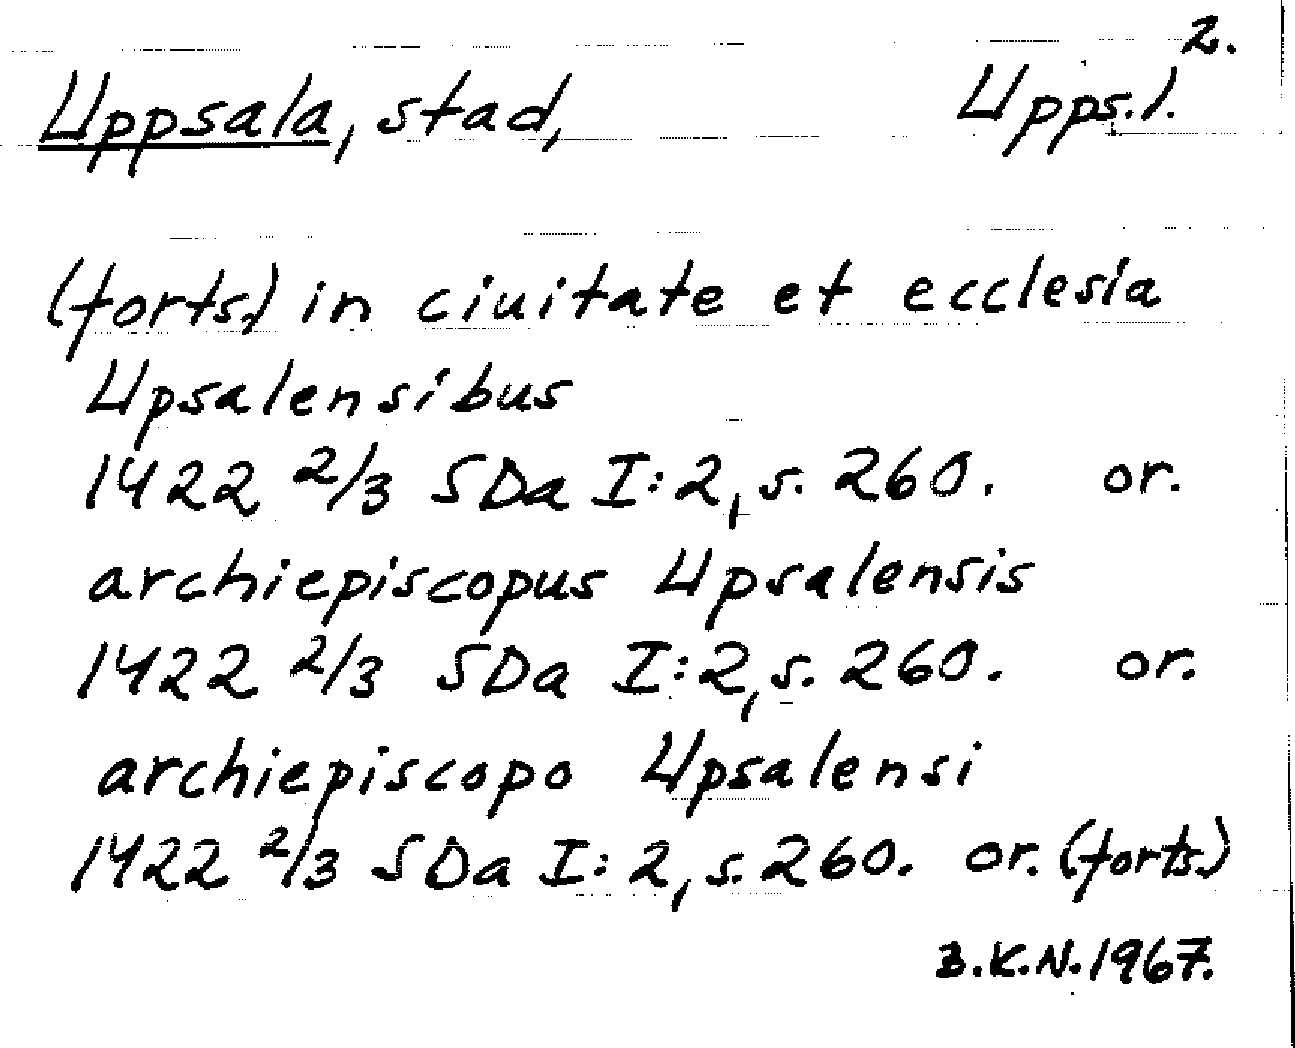 2.
Uppsala, stad, Upps.l.
(forts.) in ciuitate et ecclesia
Upsalensibus
1422 2/3 SDa I:2, s. 260. or.
archiepiscopus Upsalensis
1422 2/3 SDa I:2, s. 260. or.
archiepiscopo Upsalensi
1422 2/3 SDa I:2, s. 260. or. (forts.)
B.K.N. 1967.